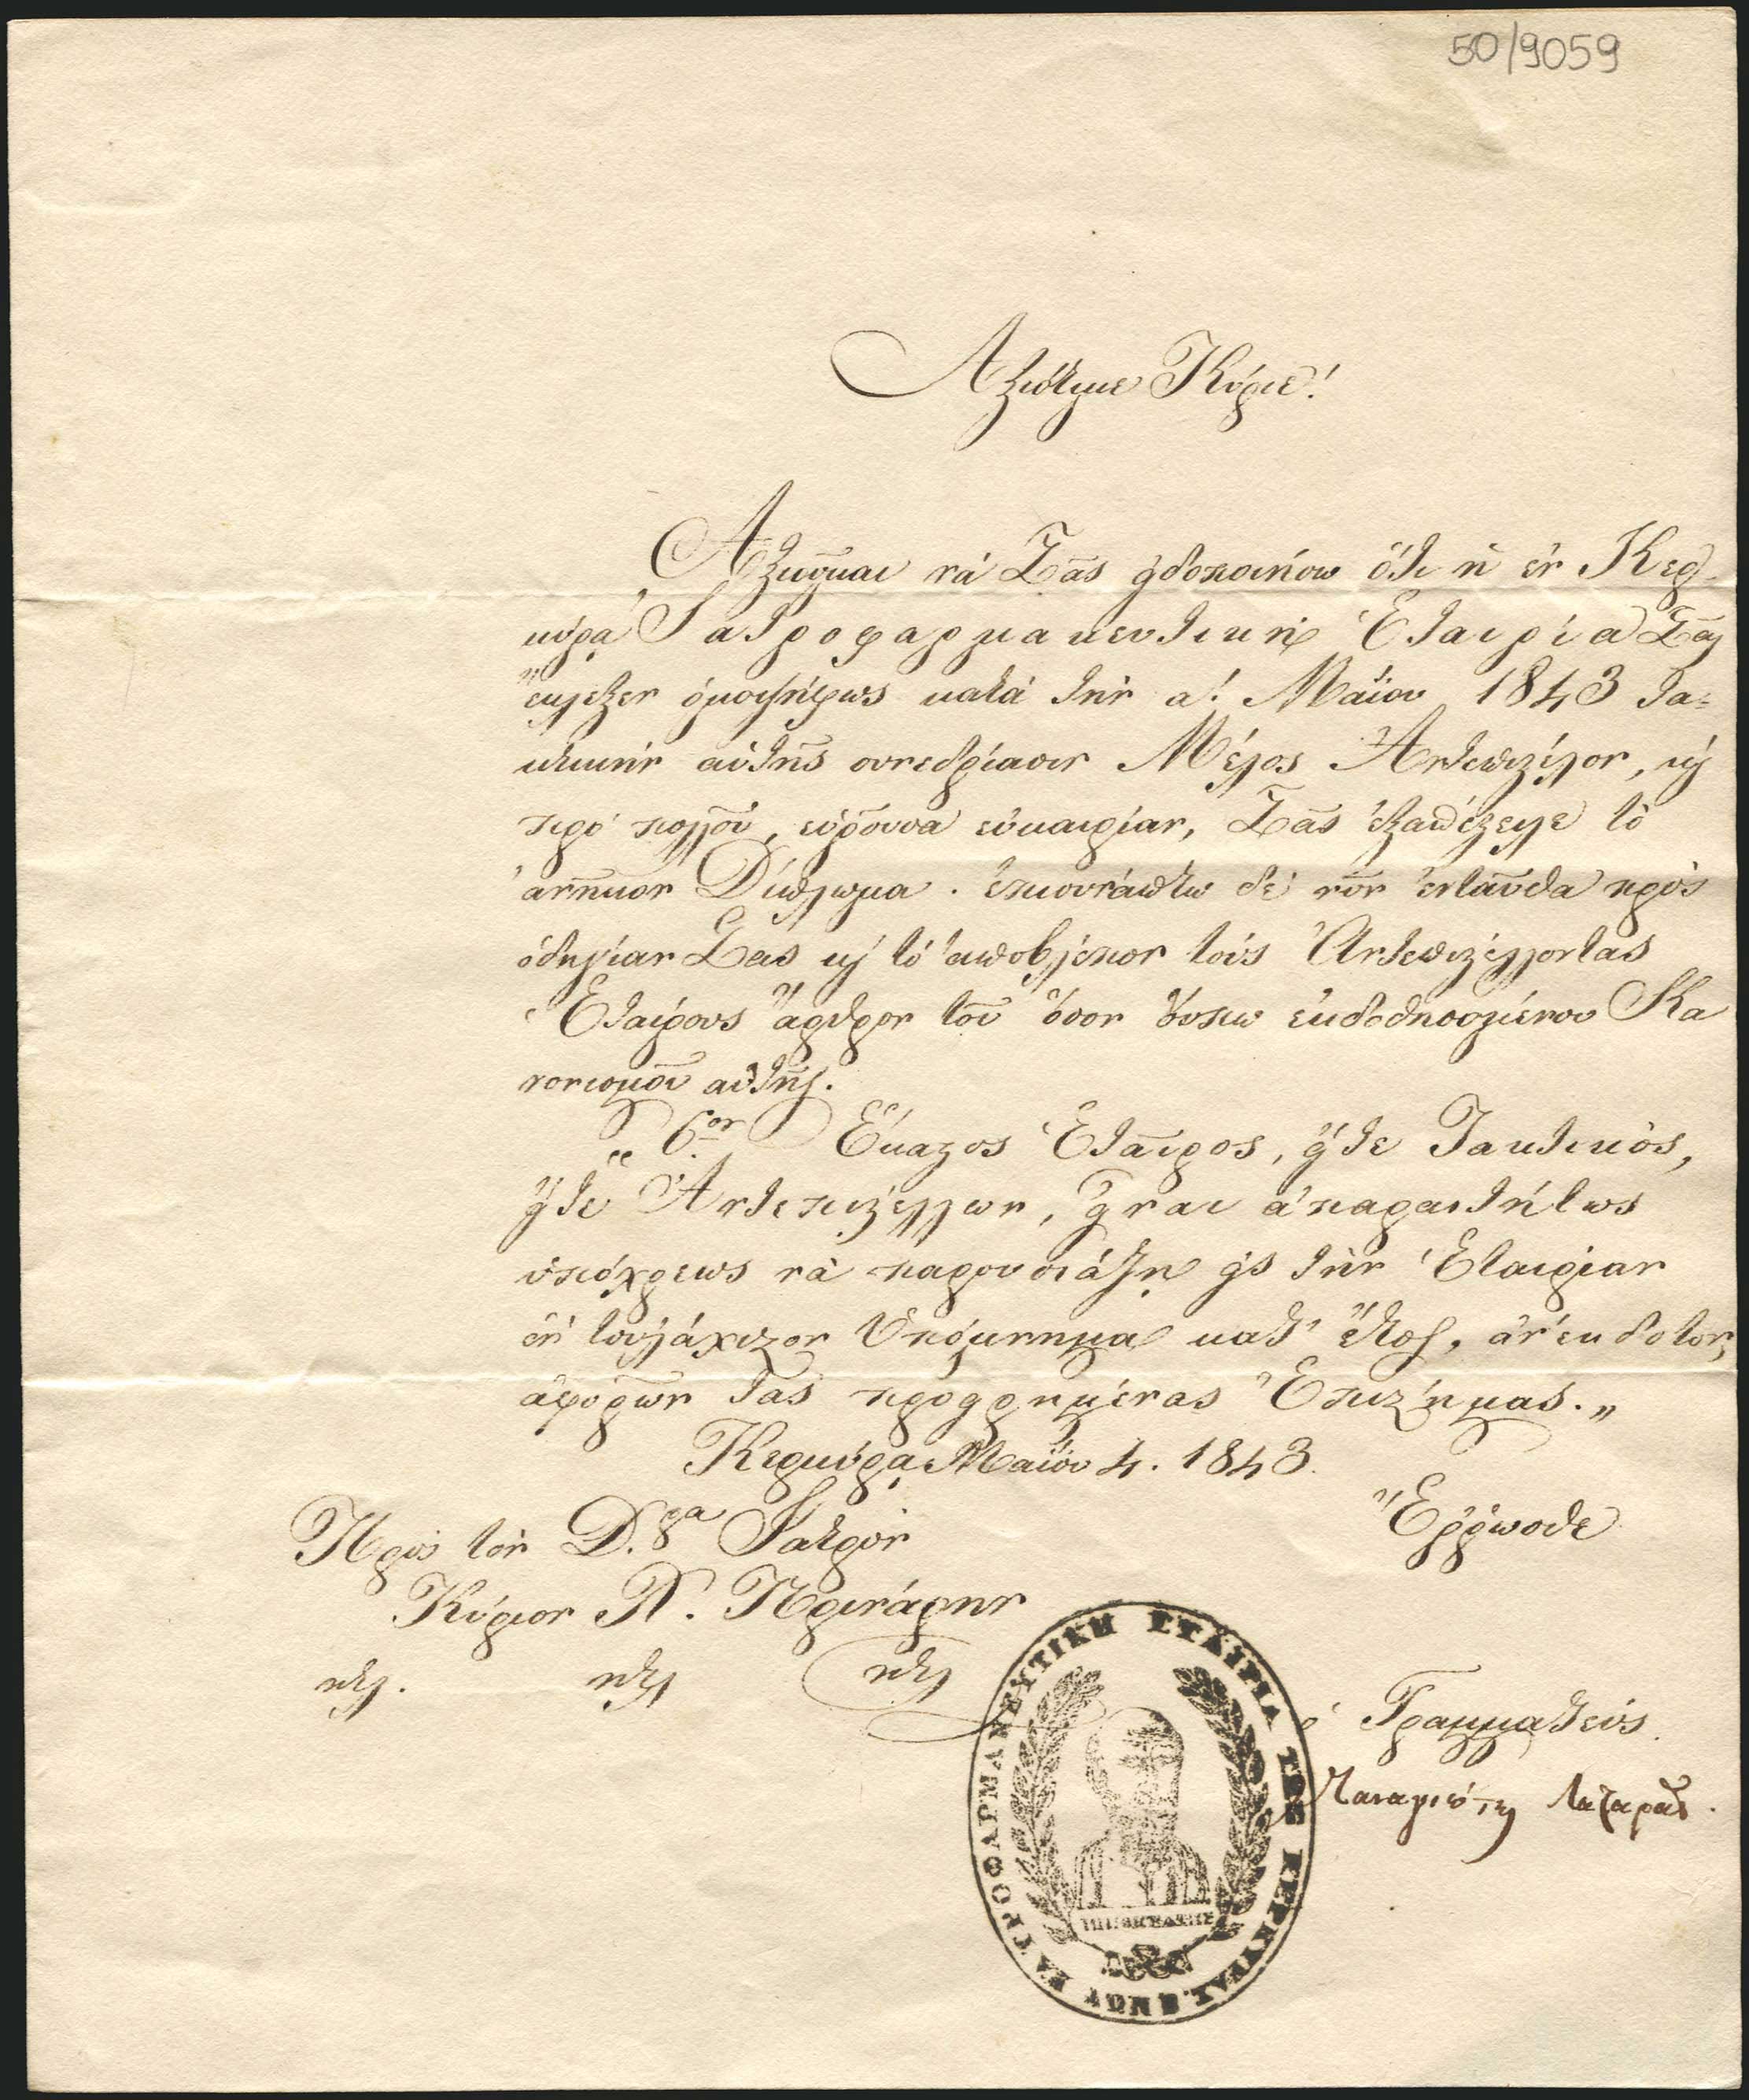 50/9059
Ἀξιότιμε Κύριε!
Ἀξιοῦμαι νά Σᾶς εἰδοποιήσω ὅτι ἡ ἐν Κερ-
κύρᾳ Ἰατροφαρμακευτική Ἑταιρία Σᾶς
ἔκλεξεν ὁμοψήφως κατά τήν α! Μαΐου 1843 τα-
κτικήν αὐτῆς συνεδρίασιν Μέλος Ἀντεπιστέλλον, καί
πρό πολλοῦ, εὑροῦσα εὐκαιρίαν, Σᾶς ἐξαπέστειλε τό
ἀνῆκον Δίπλωμα. ἐπισυνάπτω δέ νῦν ἐνταῦθα πρός
ὁδηγίαν Σας καί τό ἀποβλέπον τούς Ἀντεπιστέλλοντας
Ἑταίρους ἄρθρον τοῦ ὅσον οὔπω ἐκδοθησομένου Κα
νονισμοῦ αὐτῆς.
„ 6.ον Ἕκαστος Ἑταῖρος, εἴτε Τακτικός,
εἴτε Ἀντεπιστέλλων, εἶναι ἀπαραιτήτως
ὑπόχρεως νά παρουσιάζῃ εἰς τήν Ἑταιρίαν
ἕν τουλάχιστον Ὑπόμνημα κατ' ἔτος, ἀνέκδοτον,
ἀφορῶν τάς προειρημένας Ἐπιστήμας.„
Κερκύρᾳ Μαΐου 4. 1843.
Ἔρρωσθε
Πρός τόν Δ.ρα Ἰατρόν
Κύριον Π. Πρινάρην
κτλ. κτλ κτλ
ὁ Γραμματεύς.
Παναγιώτης Λαζαρᾶς.
ΙΑΤΡΟΦΑΡΜΑΚΕΥΤΙΚΗ ΕΤΑΙΡΙΑ ΤΗΣ ΚΕΡΚΥΡΑΣ
ΙΠΠΟΚΡΑΤΗΣ